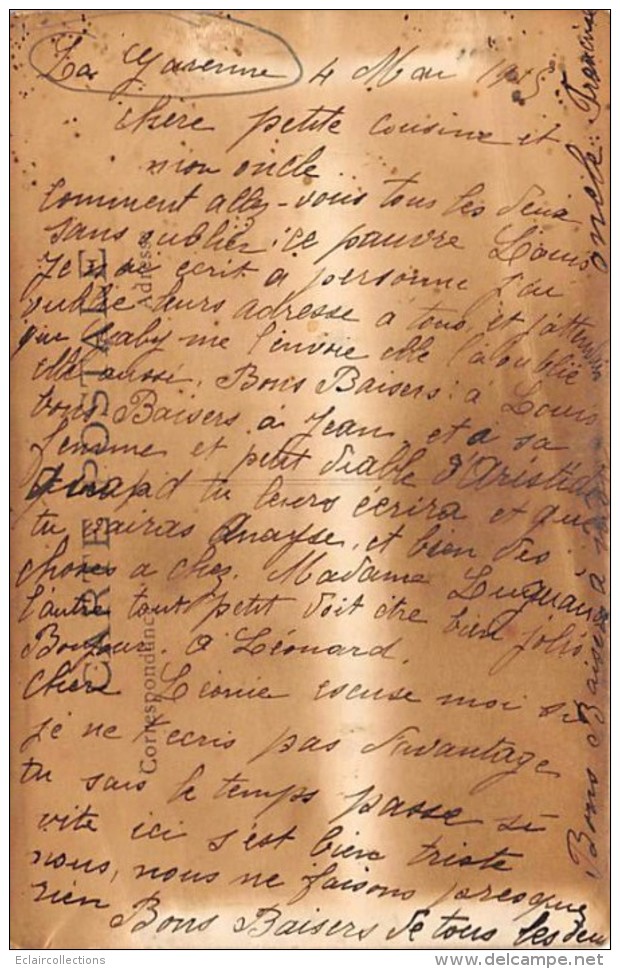 La Garenne 4 Mai 1915
chère petite cousine et
mon oncle
comment allez-vous tous les deux
sans oublier ce pauvre Louis
Je n'ai écrit a personne j'ai
oublié leurs adresse à tous, et j'attend
que Gaby me l'envoie elle l'a oublié
elle aussi, Bons Baisers à Louis
bons Baisers à Jean et à sa
femme et petit diable d'Aristide
quand tu leurs écrira et que
tu vairas Anayse, et bien des
choses a chez Madame
l'autre tout petit doit être bien joli
Bonjour. à Léonard.
chère Léonie escuse moi si
je ne t'ecris pas davantage
tu sais le temps passe si
vite ici s'est bien triste
nous, nous ne faisons presque
rien
Bons Baisers de tous les deux
Bons Baisers à mon oncle. Francine
CARTE POSTALE
Correspondance
Adresse
Eclaircollections
www.delcampe.net